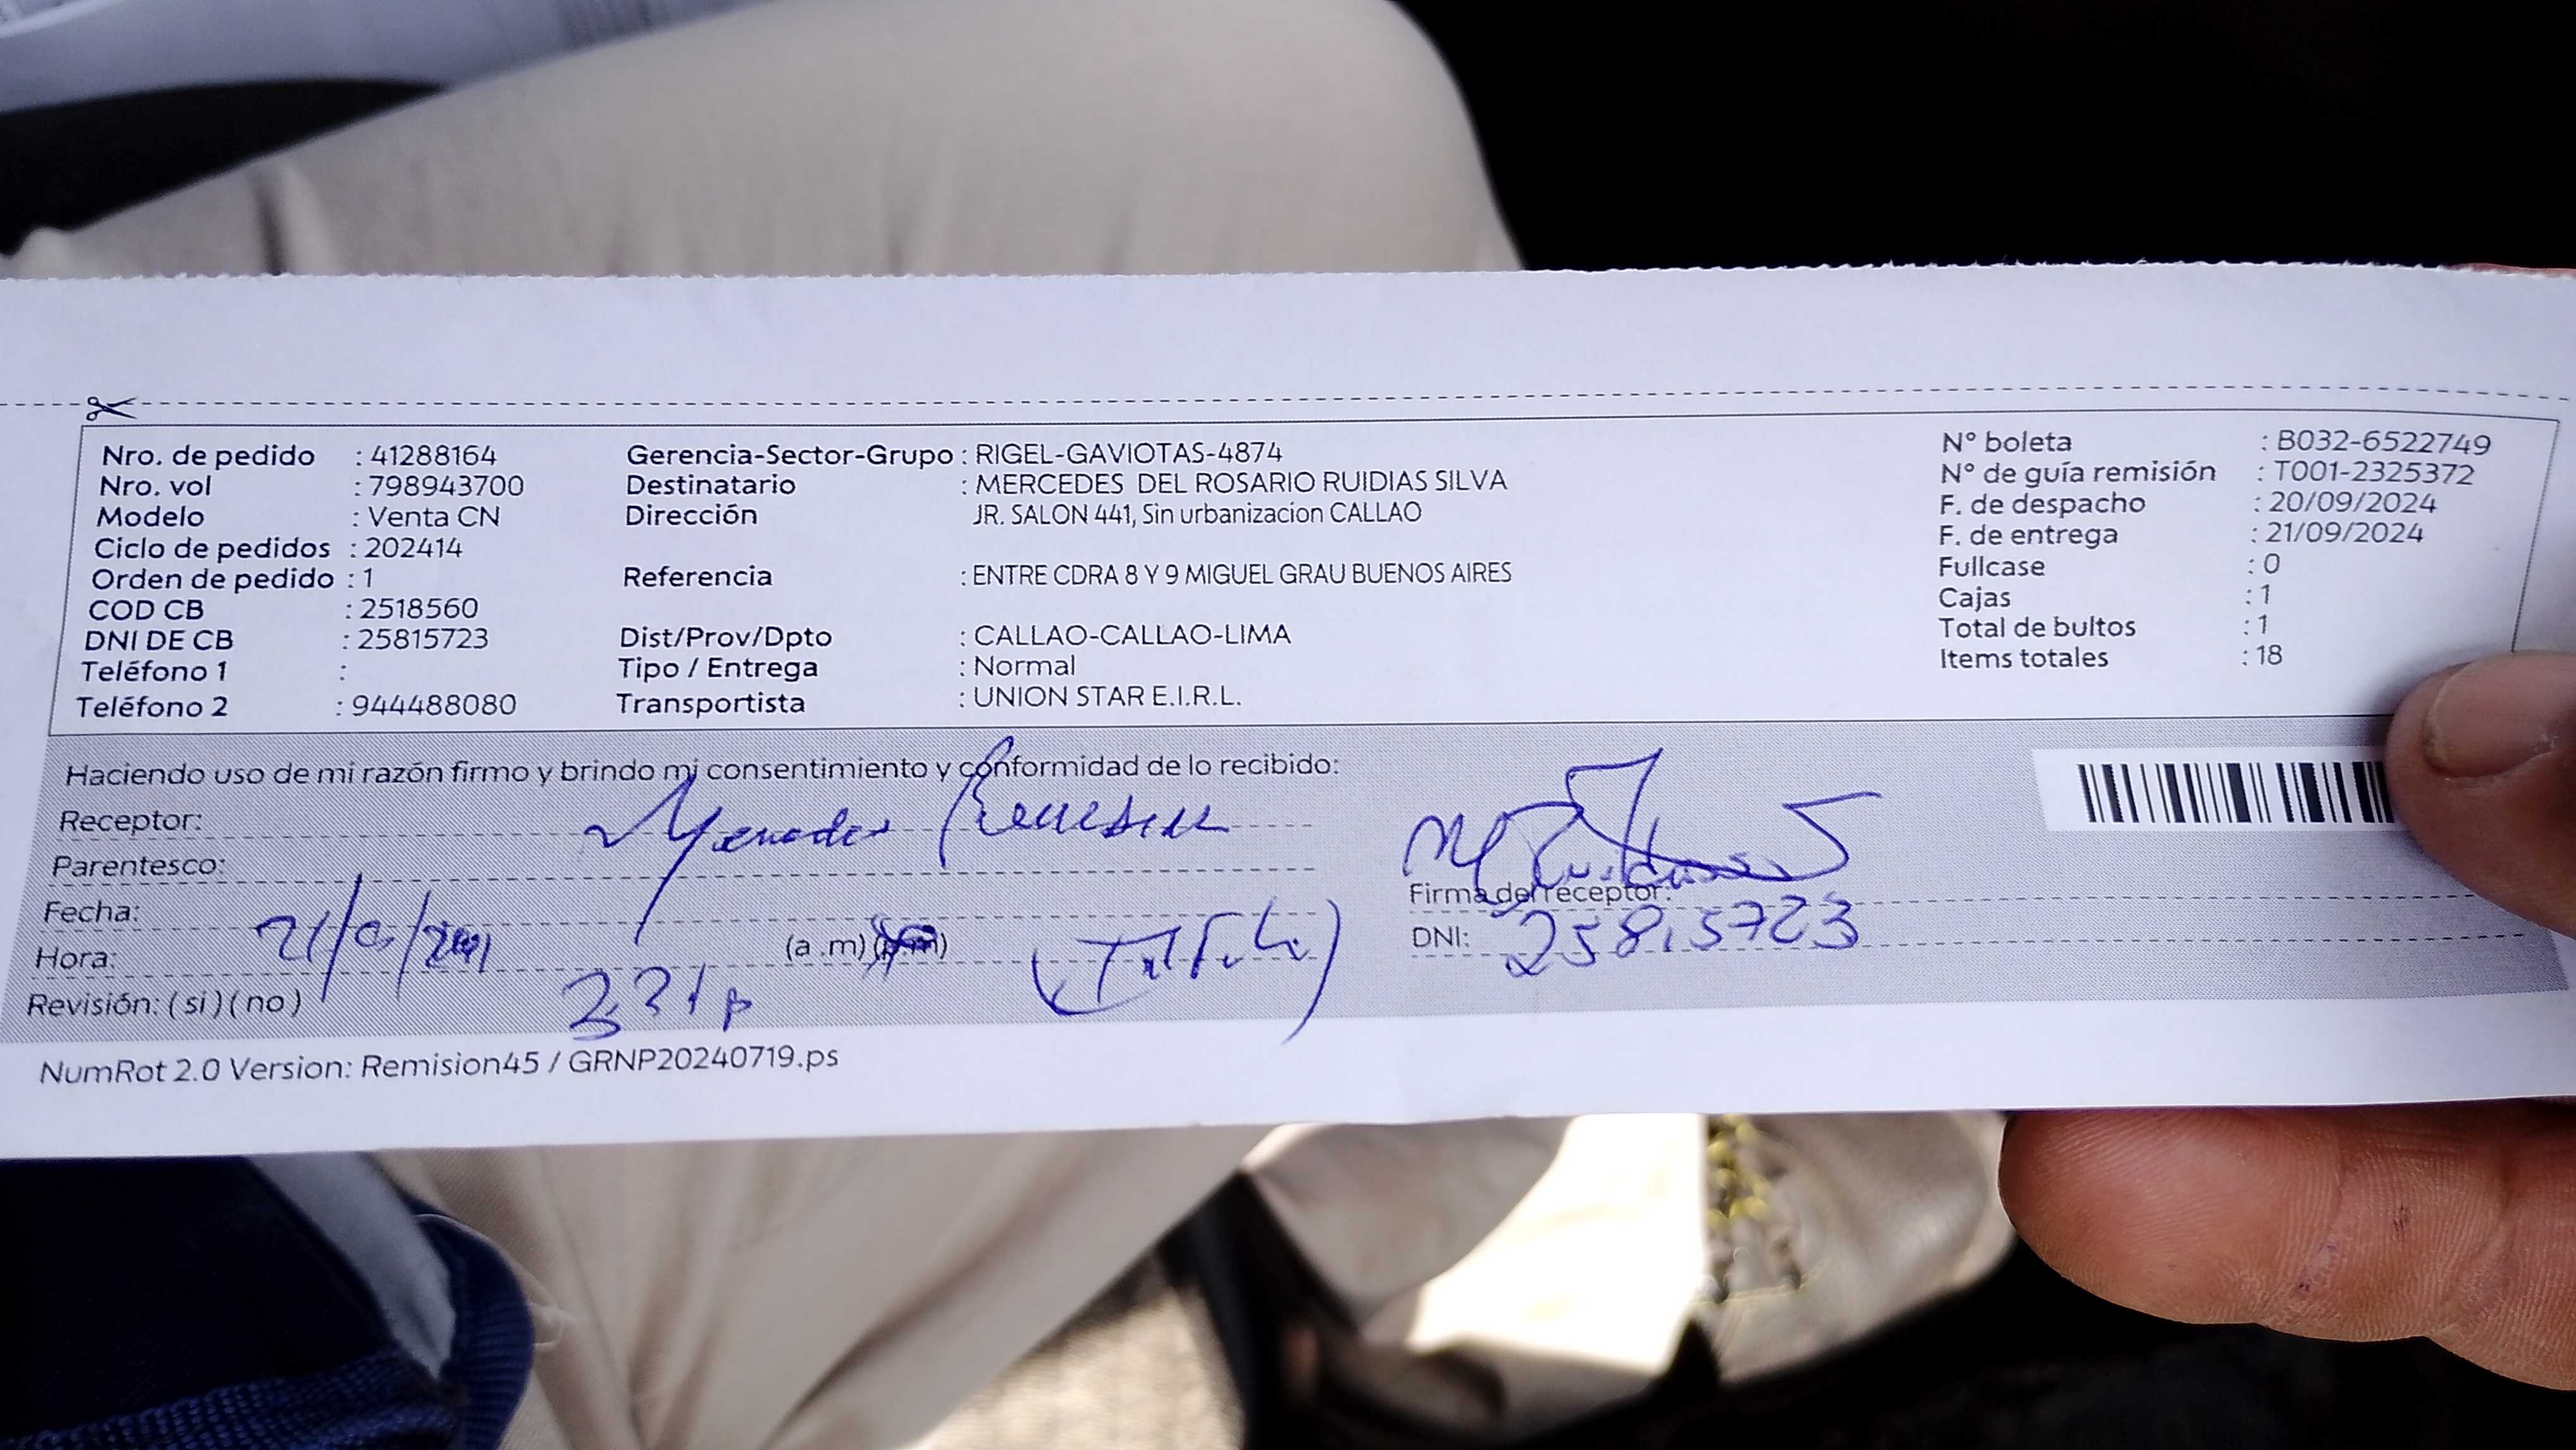 Nro. de pedido : 41288164
Nro. vol : 798943700
Modelo : Venta CN
Ciclo de pedidos : 202414
Orden de pedido : 1
COD CB : 2518560
DNI DE CB : 25815723
Teléfono 1 :
Teléfono 2 : 944488080
Gerencia-Sector-Grupo : RIGEL-GAVIOTAS-4874
Destinatario : MERCEDES DEL ROSARIO RUIDIAS SILVA
Dirección JR. SALON 441, Sin urbanizacion CALLAO
Referencia : ENTRE CDRA 8 Y 9 MIGUEL GRAU BUENOS AIRES
Dist/Prov/Dpto : CALLAO-CALLAO-LIMA
Tipo / Entrega : Normal
Transportista : UNION STAR E.I.R.L.
N° boleta : B032-6522749
N° de guía remisión : T001-2325372
F. de despacho : 20/09/2024
F. de entrega : 21/09/2024
Fullcase : 0
Cajas : 1
Total de bultos : 1
Items totales : 18
Haciendo uso de mi razón firmo y brindo mi consentimiento y conformidad de lo recibido:
Receptor:
Parentesco:
Fecha:
Hora: (a .m) (p.m)
Revisión: ( si ) ( no ) 331p
Firma del receptor:
DNI: 25815723
NumRot 2.0 Version: Remision45 / GRNP20240719.ps